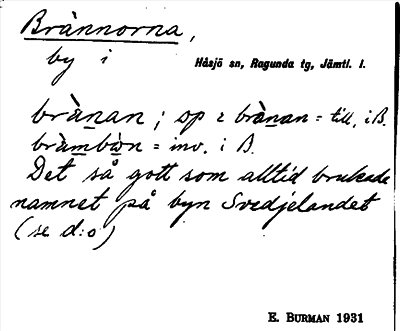 Brännorna,
by i Håsjö sn, Ragunda tg, Jämtl. l.
brànan; sp z brànan = till. i B.
bràmbẁn = inv. i B.
Det så gott som alltid brukade
namnet på byn Svedjelandet
(se d:o)
E. BURMAN 1931